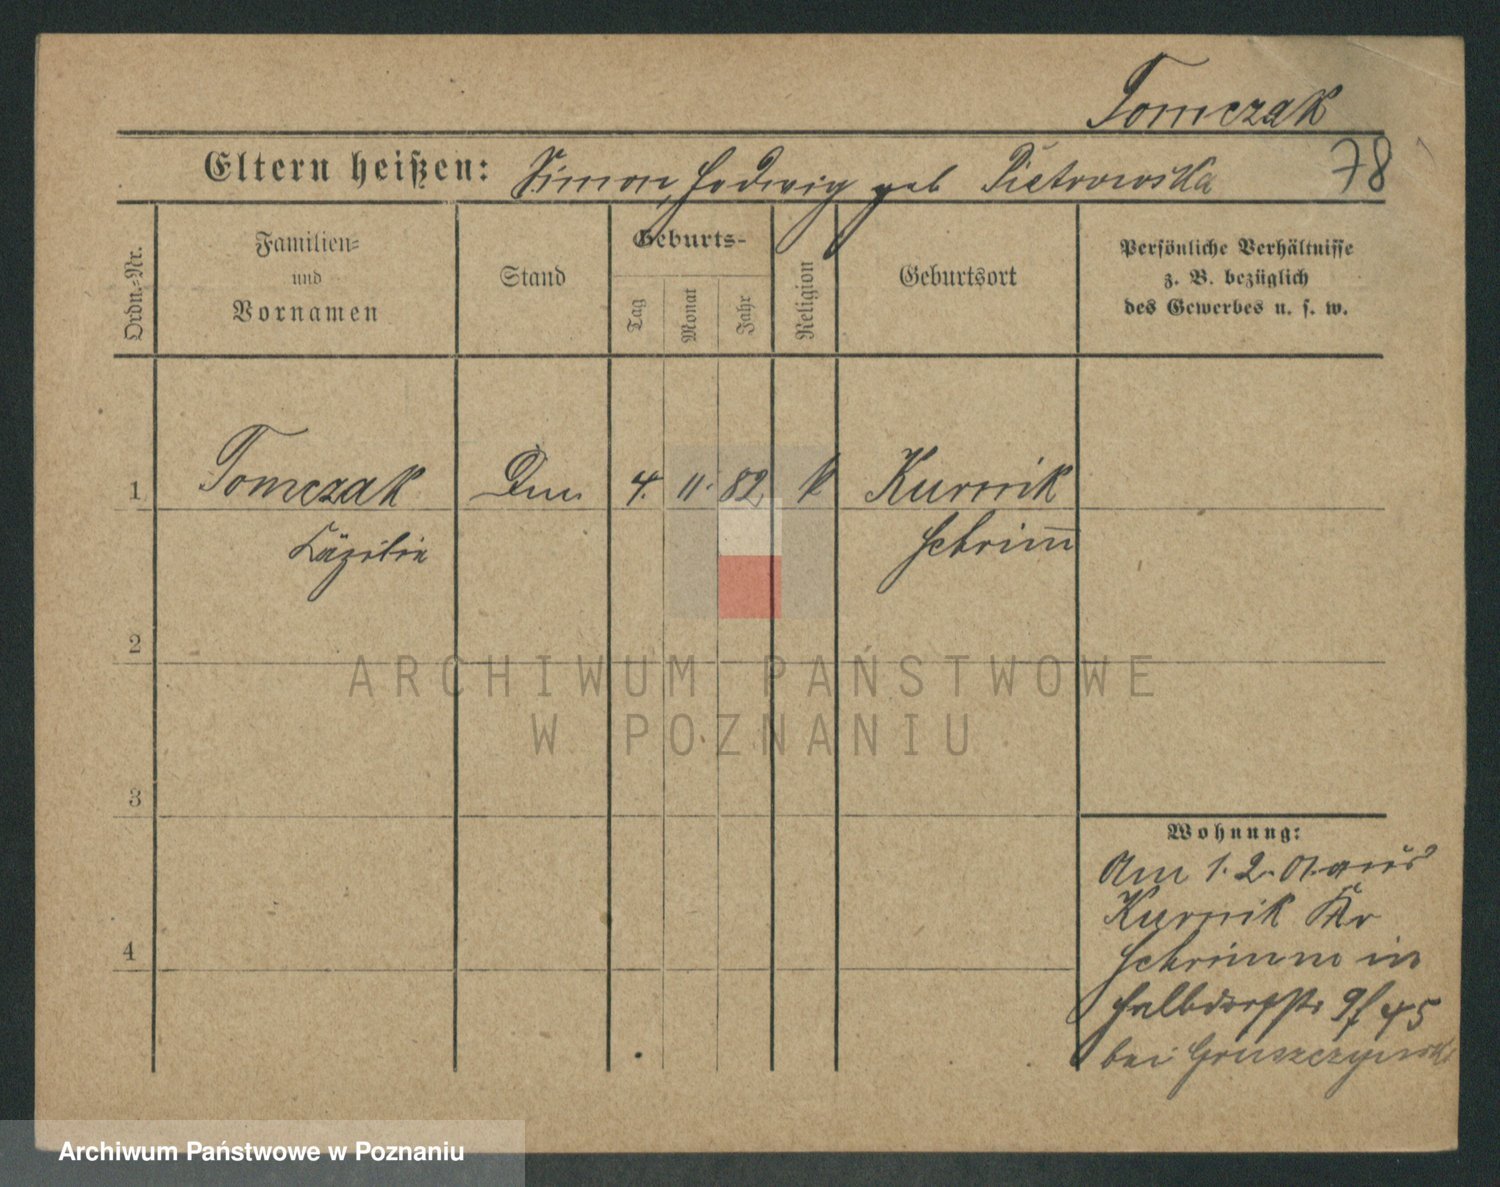 Tomczak
Eltern heißen: Simon, Hedwig geb Pietrowska 78
Ordn.=Nr.
Familien= und Vornamen
Stand
Geburts-
Tag
Monat
Jahr
Religion
Geburtsort
Persönliche Verhältnisse
z. B. bezüglich
des Gewerbes u. s. w.
1 Tomczak 4. 11. 82 k Kurnik
Cäzilie Schrim̅
2
3
4
Wohnung:
Am 1. 2. 01 aus
Kurnik Kr
Schrimm in
Halbdorfstr 9f 45
bei Gruszczynski
ARCHIWUM PAŃSTWOWE
W POZNANIU
Archiwum Państwowe w Poznaniu